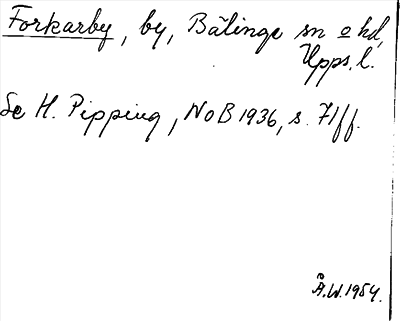 Forkarby, by, Bälinge sn o hd,
Upps. l.
Se H. Pipping, NoB 1936, s. 71ff.
Å.W. 1954.